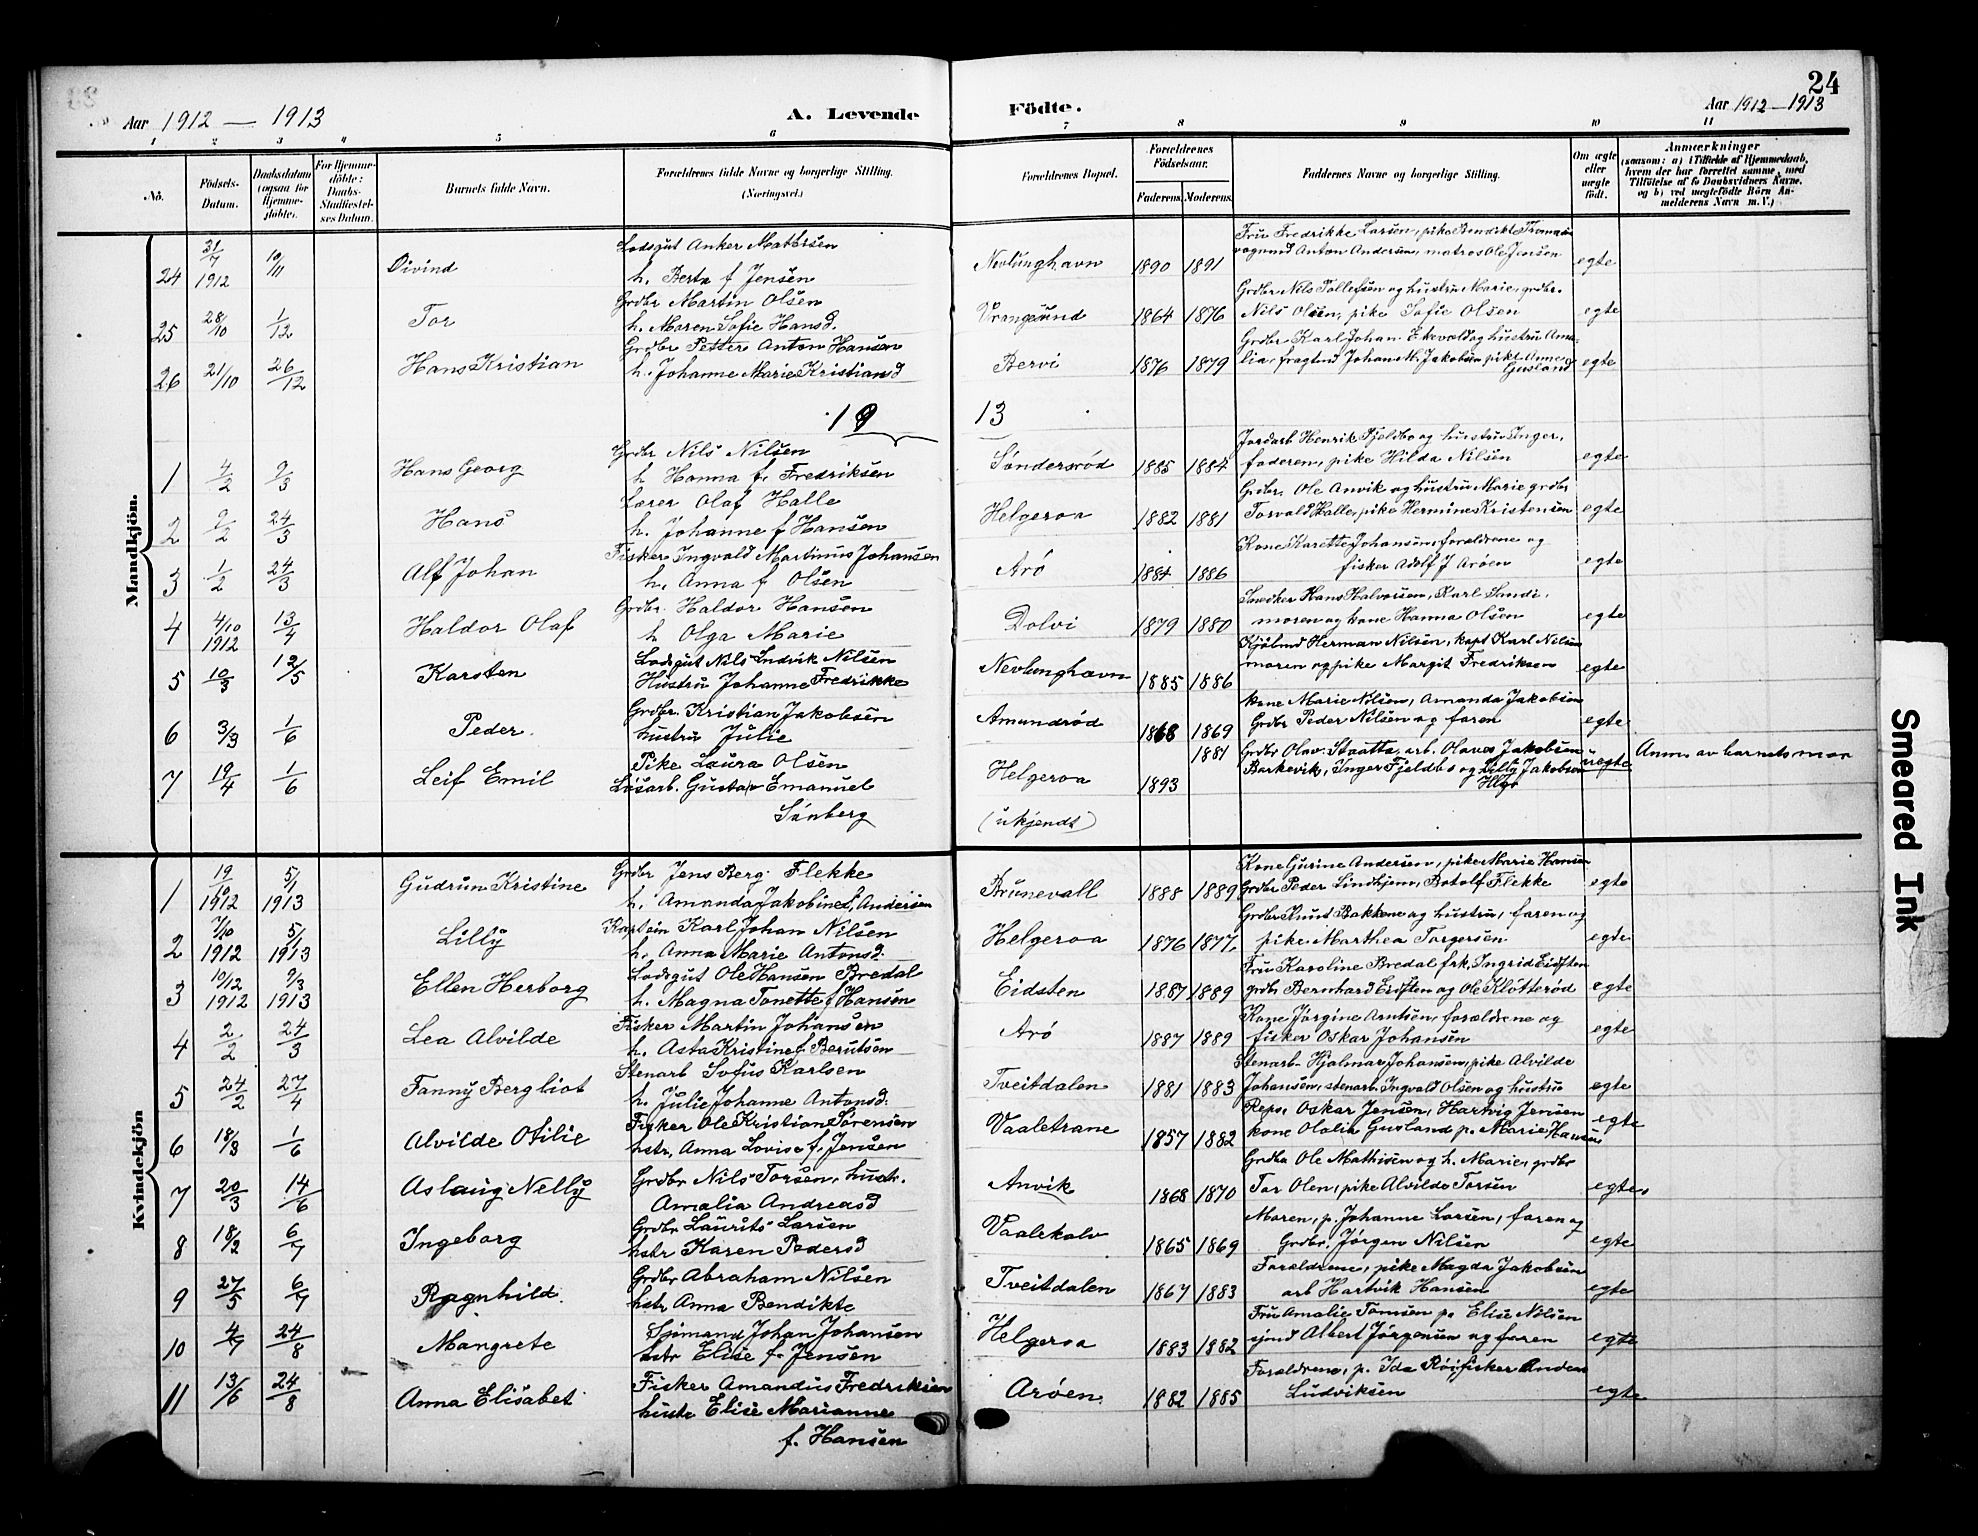 24
Aar 1912 — 1913
A. Levende
Födte.
Aar 1912 — 1913
1 2 3 4 5 6 7 8 9 10 11
No.
Födsels-
Datum.
Daabsdatum
(ogsaa for
Hjemme-
döbte).
For Hjemme-
döbte:
Daabs-
Stadfæstel-
ses Datum.
Barnets fulde Navn.
Forældrenes fulde Navne og borgerlige Stilling.
(Næringsvei.)
Forældrenes Bopæl.
Forældrenes
Födselsaar.
Faderens.
Moderens.
Faddernes Navne og borgerlige Stilling.
Om ægte
eller
uægte
født.
Anmærkninger
(saasom: a) i Tilfælde af Hjemmedaab,
hvem der har forrettet samme, med
Tilföielse af to Daabsvidners Navne,
og b) ved uægtefödte Börn An-
melderens Navn m. V.)
Mandkjön.
24 31/7 1912 10/11 Öivind
Lodsgut Anker Mathisen
h. Berta f Jensen
Nevlunghavn 1890 1891
Fru Fredrikke Larsen, pike Benedikte
vognmd Anton Andersen, matros Ole Jensen
egte
25 28/10 1/12 Tor
Grdbr Martin Olsen
h. Maren Sofie Hansd.
Vrangesund 1864 1876
Grdbr Nils Tollefsen og hustru Marie, grdbr.
Nils Olsen, pike Sofie Olsen
egte
26 21/10 26/12 Hans Kristian
Grdbr Petter Anton Hansen
h. Johanne Marie Kristiansd
Bervi 1876 1879
Grdbr Karl Johan Ekevold og hustru Ama-
lia, fragtmd Johan M. Jakobsen pike Anne
Gusland
egte
19
13
1 4/2 9/3 Hans Georg
Grdbr Nils Nilsen
h Hanna f. Fredriksen
Söndersröd 1885 1884
Jordarb Henrik Fjeldbo og hustru Inger,
faderen, pike Hilda Nilsen
egte
2 9/2 24/3 Hans
Lærer Olaf Halle
h. Johanne f Hansen
Helgeroa 1882 1881
Grdbr. Ole Anvik og hustru Marie grdbr
Torvald Halle, pike Hermine Kristensen
egte
3 1/2 24/3 Alf Johan
Fisker Ingvald Martinius Johansen
h. Anna f Olsen
Arö 1884 1886
Kone Karette Johansen, forældrene og
fisker Adolf J Aröen
egte
4 4/10 1912 13/4 Haldor Olaf
Grdbr. Haldor Hansen
h Olga Marie
Dolvi 1879 1880
Snedker Hans Halvorsen, Karl
moren og kone Hanna Olsen
egte
5 10/3 12/5 Karsten
Lodsgut Nils Indrik Nilsen
Hustru Johanne Fredrikke
Nevlunghavn 1885 1886
Kjöbmd Herman Nilsen, kapt Karl Nilsen
moren og pike Margit Fredriksen
egte
6 3/3 1/6 Peder.
Grdbr. Kristian Jakobsen
hustru Julie
Amundröd 1868 1869
kone Marie Nilsen, Amanda Jakobsen
Grdbr Peder Nilsen og faren
egte
7 19/4 1/6 Leif Emil
Pike Laura Olsen
Lösarb. Gustav Emanuel
Sönberg
Helgeroa
(ukjendt)
1893 1881
Grdbr Olav Staatta, arb. Olaves Jakobsen
Barkevik, Inger Fjeldbo og Lilly Jakobsen
Hlgr
uegte Anm. av barnets mor
Kvindekjön
1 19/10 1912 5/1 1913 Gudrun Kristine
Grdbr Jens Berg Flekke
h. Amanda Jakobine f. Andersen
Brunevall 1888 1889
Kone Gurine Andersen, pike Marie Hansen
Grdbr Peder Lindhjem, Botolf Flekke
egte
2 7/10 1912 5/1 1913 Lilly
Kaptein Karl Johan Nilsen
h. Anna Marie Antonsd.
Helgeroa 1876 1877
Grdbr Knut Bakkene og hustru, faren og
pike Marthea Torgersen
egte
3 10/12 1912 9/3 1913 Ellen Herborg
Lodsgut Ole Hansen Bredal
h. Magna Tonette f Hansen
Eidsten 1887 1889
Fru Karoline Bredal frk, Ingrid Eidsten
grdbr Bernhard Eidsten og Ole Klötteröd
egte
4 2/2 24/3 Lea Alvilde
Fisker Martin Johansen
h. Asta Kristine f Berntsen
Arö 1887 1889
Kone Jörgine Arntsen, forældrene og
fisker Oskar Johansen
egte
5 24/2 27/4 Fanny Bergliot
Stenarb Sofus Karlsen
h. Julie Johanne Antonsd:
Tveitdalen 1881 1883
Stenarb. Hjalmar Johansen, pike Alvilde
Johansen, stenarb. Ingvald Olsen og hustru
egte
6 18/3 1/6 Alvilde Otilie
Fisker Ole Kristian Sörensen
hstr, Anna Lovise f. Jensen
Vaaletrane 1857 1882
Reps. Oskar Jensen, Hartvig Jensen
kone Olalia Gusland p. Marie Hansen
egte
7 20/3 14/6 Aslaug Nelly
Grdbr Nils Torsen, hustr.
Amalia Andreasd
Anvik 1868 1870
Grdbr Ole Mathisen og h. Marie, grdbr
Tor Olen, pike Alvilde Torsen
egte.
8 18/2 6/7 Ingeborg
Grdbr Laurits Larsen
hstr Karen Pedersd
Vaalekolv 1865 1869
Moren, p. Johanne Larsen, faren og
Grdbr. Jörgen Nilsen
egte
9 27/5 6/7 Ragnhild.
Grdbr Abraham Nilsen
hstr Anna Bendikte
Tveitdalen 1867 1883
Forældrene, pike Magda Jakobsen
arb Hartvik Hansen
egte
10 4/7 24/8 Mangrete
Sjömand Johan Johansen
hstr Elise f. Jensen
Helgeroa 1883 1882
Fru Amalie Tomsen p. Elise Nilsen
sjmd Albert Jörgensen og faren
egte
11 13/6 24/8 Anna Elisabet
Fisker Amandus Fredriksen
hustr Elise Marianne
f. Hansen
Aröen 1882 1885
Forældrene, p. Ida Röi, fisker Anders
Ludviksen
egte
Smeared Ink